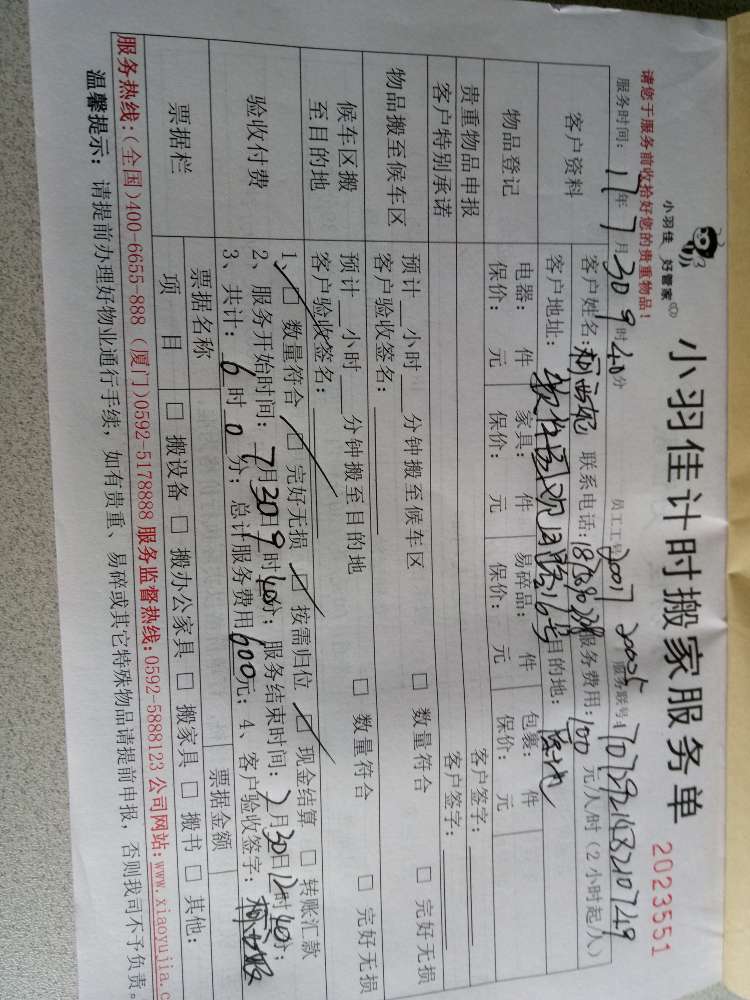 小羽佳 好管家
小羽佳计时搬家服务单
2023551
请您于服务前收拾好您的贵重物品！
服务时间：17年7月30 9时40分 员工工号 2007 2005 服务联号：
客户资料
客户姓名： 联系电话： 服务费用：100元/人/时（2小时起/人）
客户地址：软件园观日路26号 目的地：
物品登记
电器： 件 家具： 件 易碎品： 件 包裹： 件
保价： 元 保价： 元 保价： 元 保价： 元
贵重物品申报 客户签字：
客户特别承诺 客户签字：
物品搬至候车区
预计 小时 分钟搬至候车区 □ 数量符合 □ 完好无损
客户验收签名：
候车区搬至目的地
预计 小时 分钟搬至目的地 □ 数量符合 □ 完好无损
客户验收签名：
验收付费
1、□ 数量符合 □ 完好无损 □ 按需归位 □ 现金结算 □ 转账汇款
2、服务开始时间：7月30日9时40分；服务结束时间：7月30日12时40分；
3、共计：6时0分；总计服务费用600元；4、客户验收签字：
票据栏
票据名称 票据金额
项 目 □ 搬设备 □ 搬办公家具 □ 搬家具 □ 搬书 □ 其他：
服务热线：(全国)400-6655-888 (厦门)0592-5178888 服务监督热线：0592-5888123 公司网站：www.xiaoyujia.c
温馨提示：请提前办理好物业通行手续，如有贵重、易碎或其它特殊物品请提前申报，否则我司不予负责。